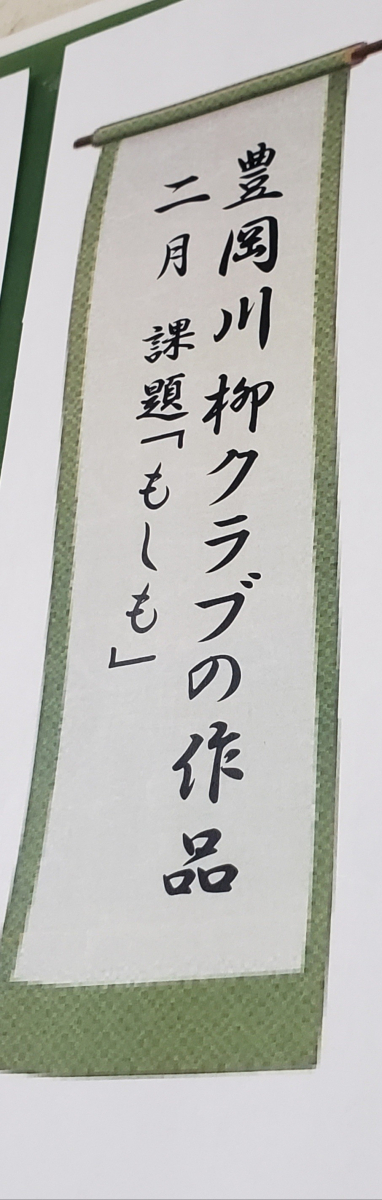 豊岡川柳クラブの作品
二月 課題「もしも」